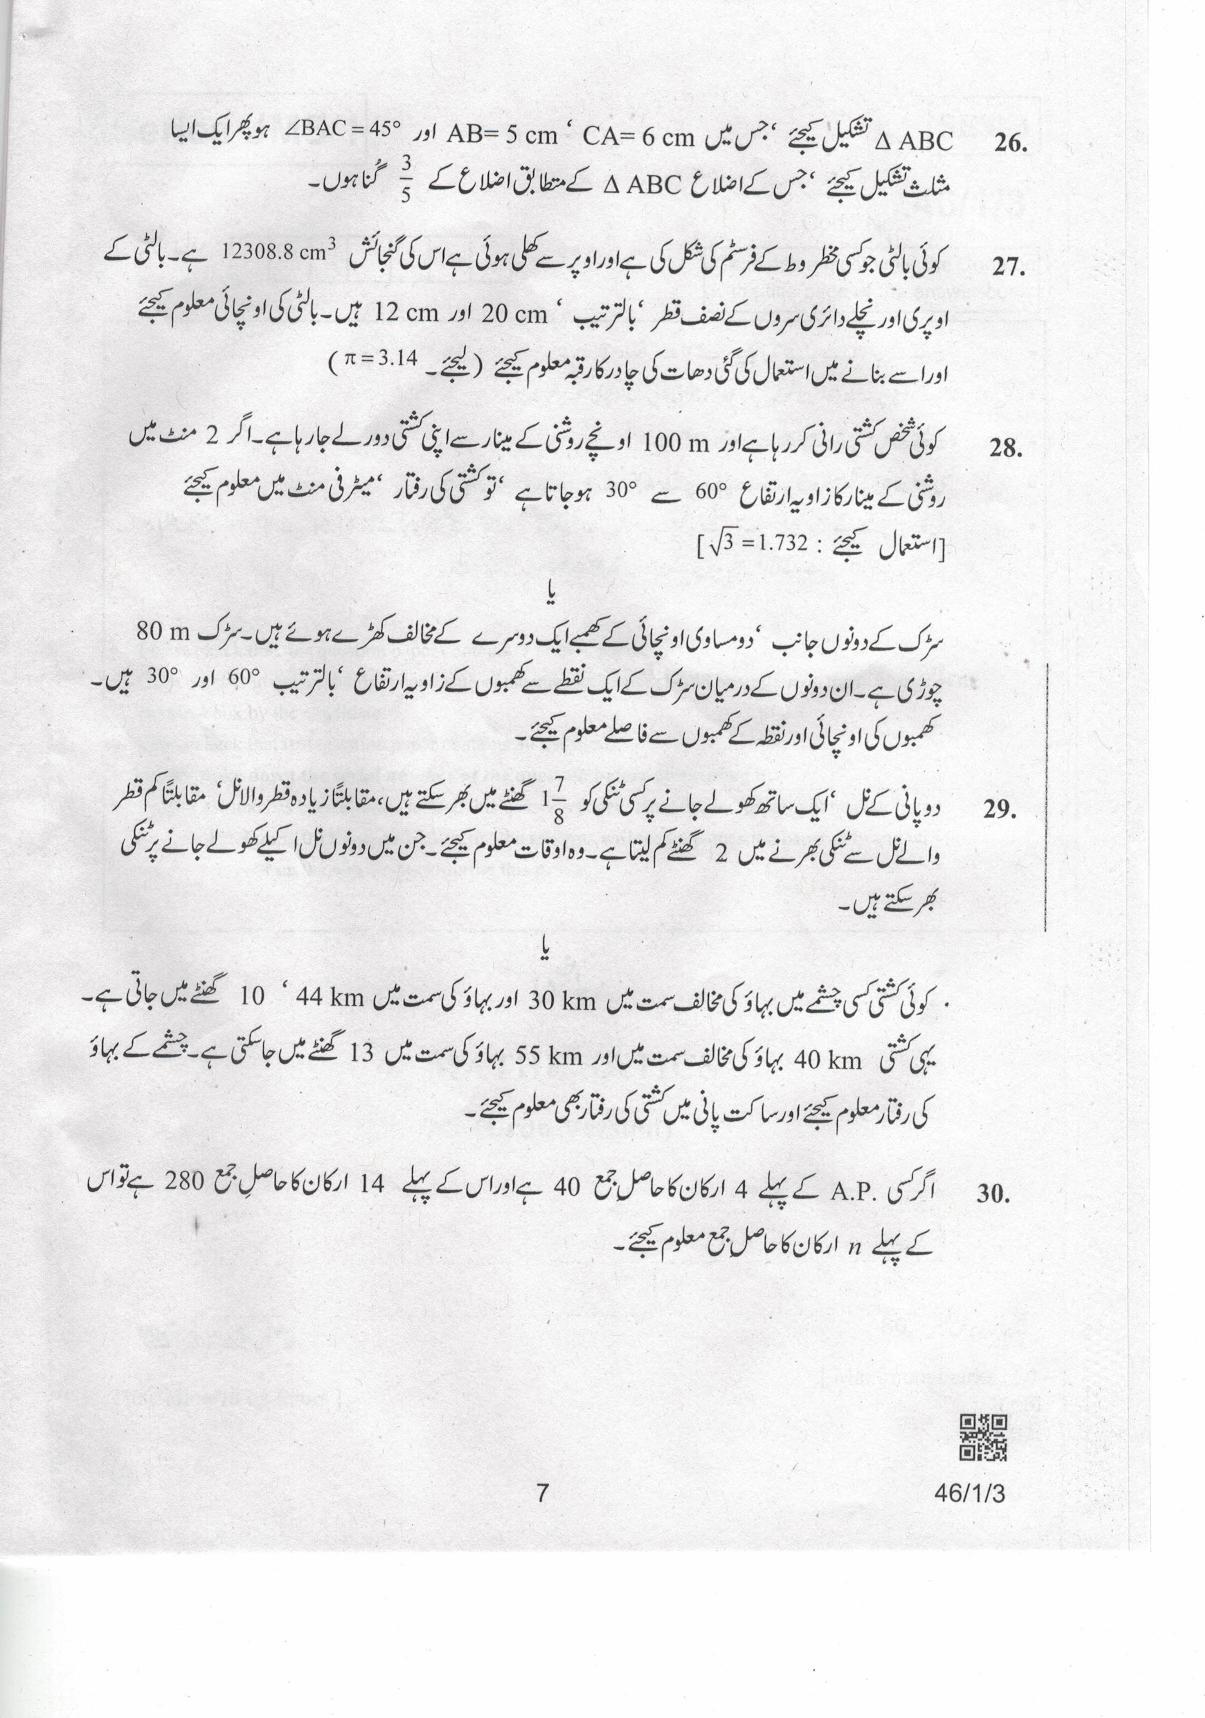 26. Δ ABC تشکیل کیجئے ‘جس میں AB= 5 cm ‘ CA= 6 cm اور ∠BAC = 45° ہو پھر ایک ایسا
مثلث تشکیل کیجئے ‘جس کے اضلاع Δ ABC کے متطابق اضلاع کے 3/5 گُنا ہوں۔
27. کوئی بالٹی جو کسی مخطروط کے فرسٹم کی شکل کی ہے اور اوپر سے کھلی ہوئی ہے اس کی گنجائش 12308.8 cm³ ہے۔ بالٹی کے
اوپری اور نچلے دائری سروں کے نصف قطر ‘بالترتیب ‘ 20 cm اور 12 cm ہیں۔ بالٹی کی اونچائی معلوم کیجئے
اور اسے بنانے میں استعمال کی گئی دھات کی چادر کا رقبہ معلوم کیجئے (لیجئے۔ π = 3.14 )
28. کوئی شخص کشتی رانی کر رہا ہے اور 100 m اونچے روشنی کے مینار سے اپنی کشتی دور لے جا رہا ہے۔ اگر 2 منٹ میں
روشنی کے مینار کا زاویہ ارتفاع 60° سے 30° ہو جاتا ہے ‘تو کشتی کی رفتار ‘میٹر فی منٹ میں معلوم کیجئے
[استعمال کیجئے : √3 = 1.732 ]
یا
سڑک کے دونوں جانب ‘دو مساوی اونچائی کے کھمبے ایک دوسرے کے مخالف کھڑے ہوئے ہیں۔ سڑک 80 m
چوڑی ہے۔ ان دونوں کے درمیان سڑک کے ایک نقطے سے کھمبوں کے زاویہ ارتفاع ‘بالترتیب 60° اور 30° ہیں۔
کھمبوں کی اونچائی اور نقطہ کے کھمبوں سے فاصلے معلوم کیجئے۔
29. دو پانی کے نل ‘ایک ساتھ کھولے جانے پر کسی ٹنکی کو 1 7/8 گھنٹے میں بھر سکتے ہیں، مقابلتاً زیادہ قطر والا نل‘ مقابلتاً کم قطر
والے نل سے ٹنکی بھرنے میں 2 گھنٹے کم لیتا ہے۔ وہ اوقات معلوم کیجئے۔ جن میں دونوں نل اکیلے کھولے جانے پر ٹنکی
بھر سکتے ہیں۔
یا
کوئی کشتی کسی چشمے میں بہاؤ کی مخالف سمت میں 30 km اور بہاؤ کی سمت میں 44 km ‘ 10 گھنٹے میں جاتی ہے۔
یہی کشتی 40 km بہاؤ کی مخالف سمت میں اور 55 km بہاؤ کی سمت میں 13 گھنٹے میں جا سکتی ہے۔ چشمے کے بہاؤ
کی رفتار معلوم کیجئے اور ساکت پانی میں کشتی کی رفتار بھی معلوم کیجئے۔
30. اگر کسی A.P. کے پہلے 4 ارکان کا حاصلِ جمع 40 ہے اور اس کے پہلے 14 ارکان کا حاصلِ جمع 280 ہے تو اس
کے پہلے n ارکان کا حاصلِ جمع معلوم کیجئے۔
7
46/1/3